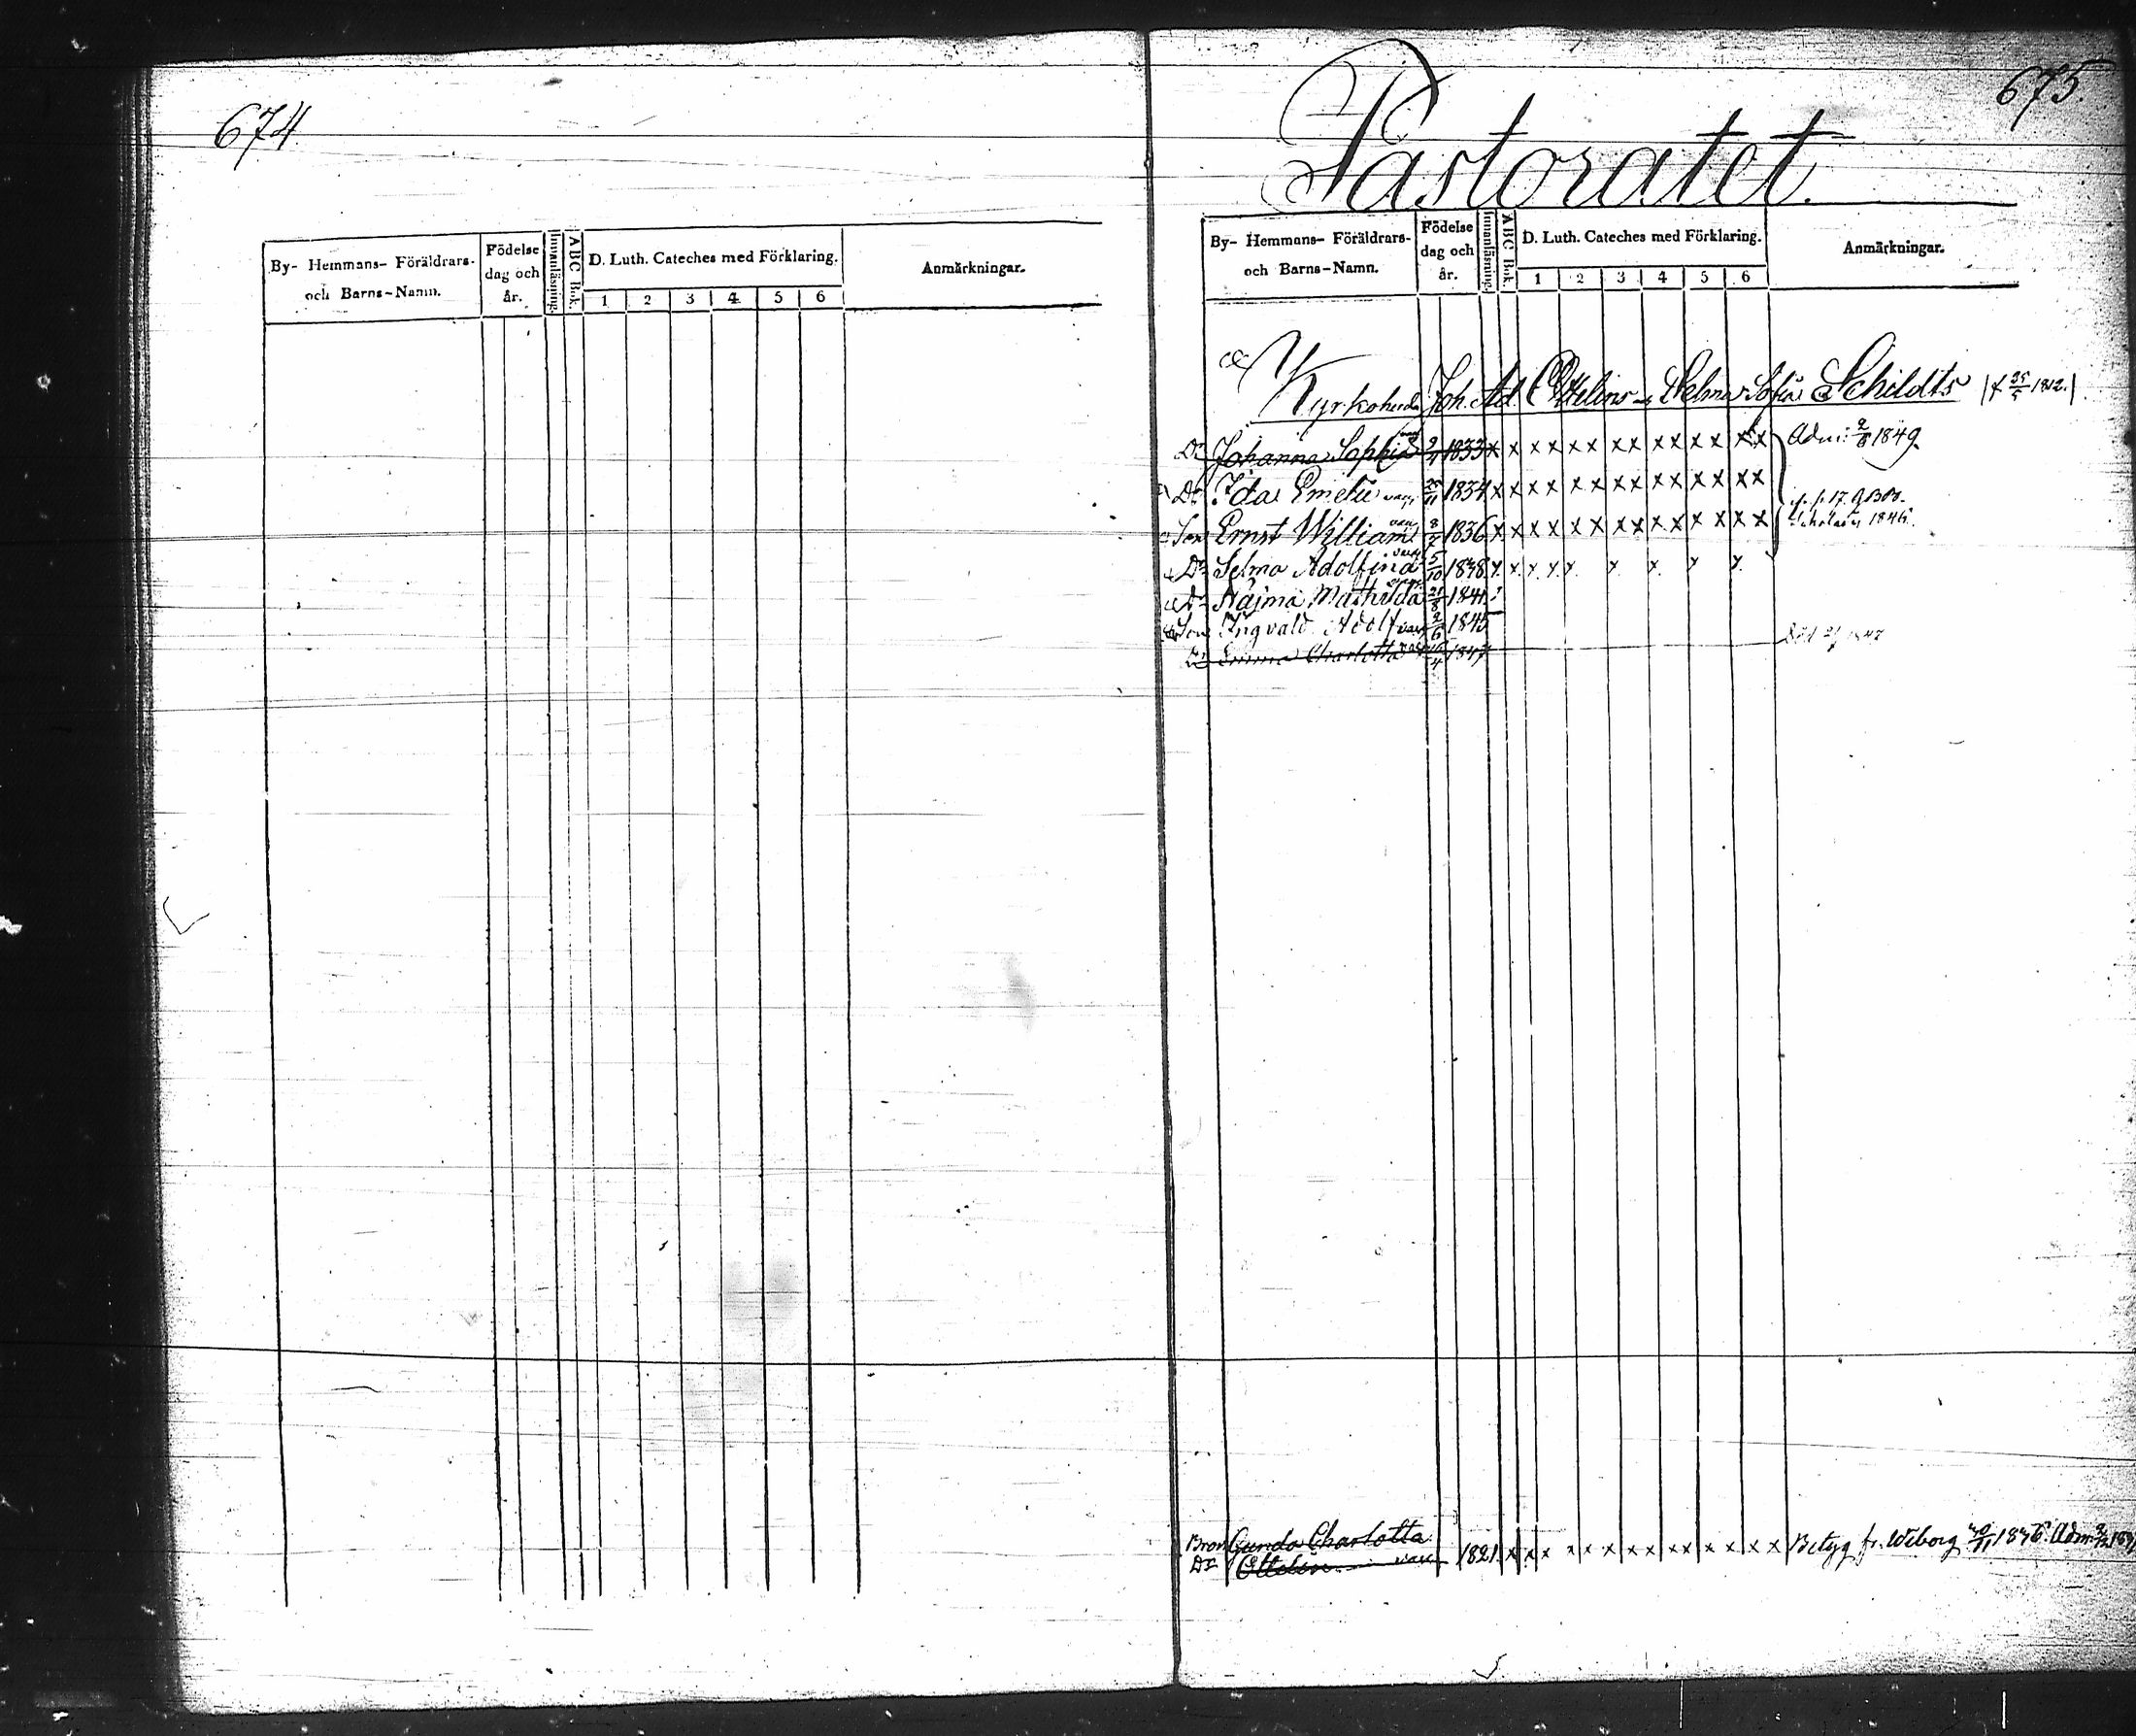 674
By- Hemmans- Föräldrars-
och Barns-Namn.
Födelse
dag och
år.
Innanläsning.
ABC Bok.
D. Luth. Cateches med Förklaring.
1 2 3 4 5 6
Anmärkningar.
675.
Pastoratet.
By- Hemmans- Föräldrars-
och Barns-Namn.
Födelse
dag och
år.
Innanläsning.
ABC Bok.
D. Luth. Cateches med Förklaring.
1 2 3 4 5 6
Anmärkningar.
Kyrkoherd. Joh. Ad. Ottelins Selma Sofia Schildts 1812.
Dr Johanna Sophia vac 1833 x x x x x x x x x x x x x x Adm: 2/6 1849.
Dr Ida Emelie vac. 1834 x x x x x x x x x x x x x x
Son Ernst William vac 8/7 1836 x x x x x x x x x x x x x x 1846.
Dr Selma Adolfina vac 5/10 1838 x x x x x x x x x
Dr Hajma Mathilda 21/8 1841.
Son Ingvald Adolf vac 2/6 1845
Dr Emma Charlotta vac 1847 1847
Bror Gunda Charlotta
Dr Ottelin vac 1821 x x x x x x x x x x x x x x Betyg fr. Wiborg Adm.